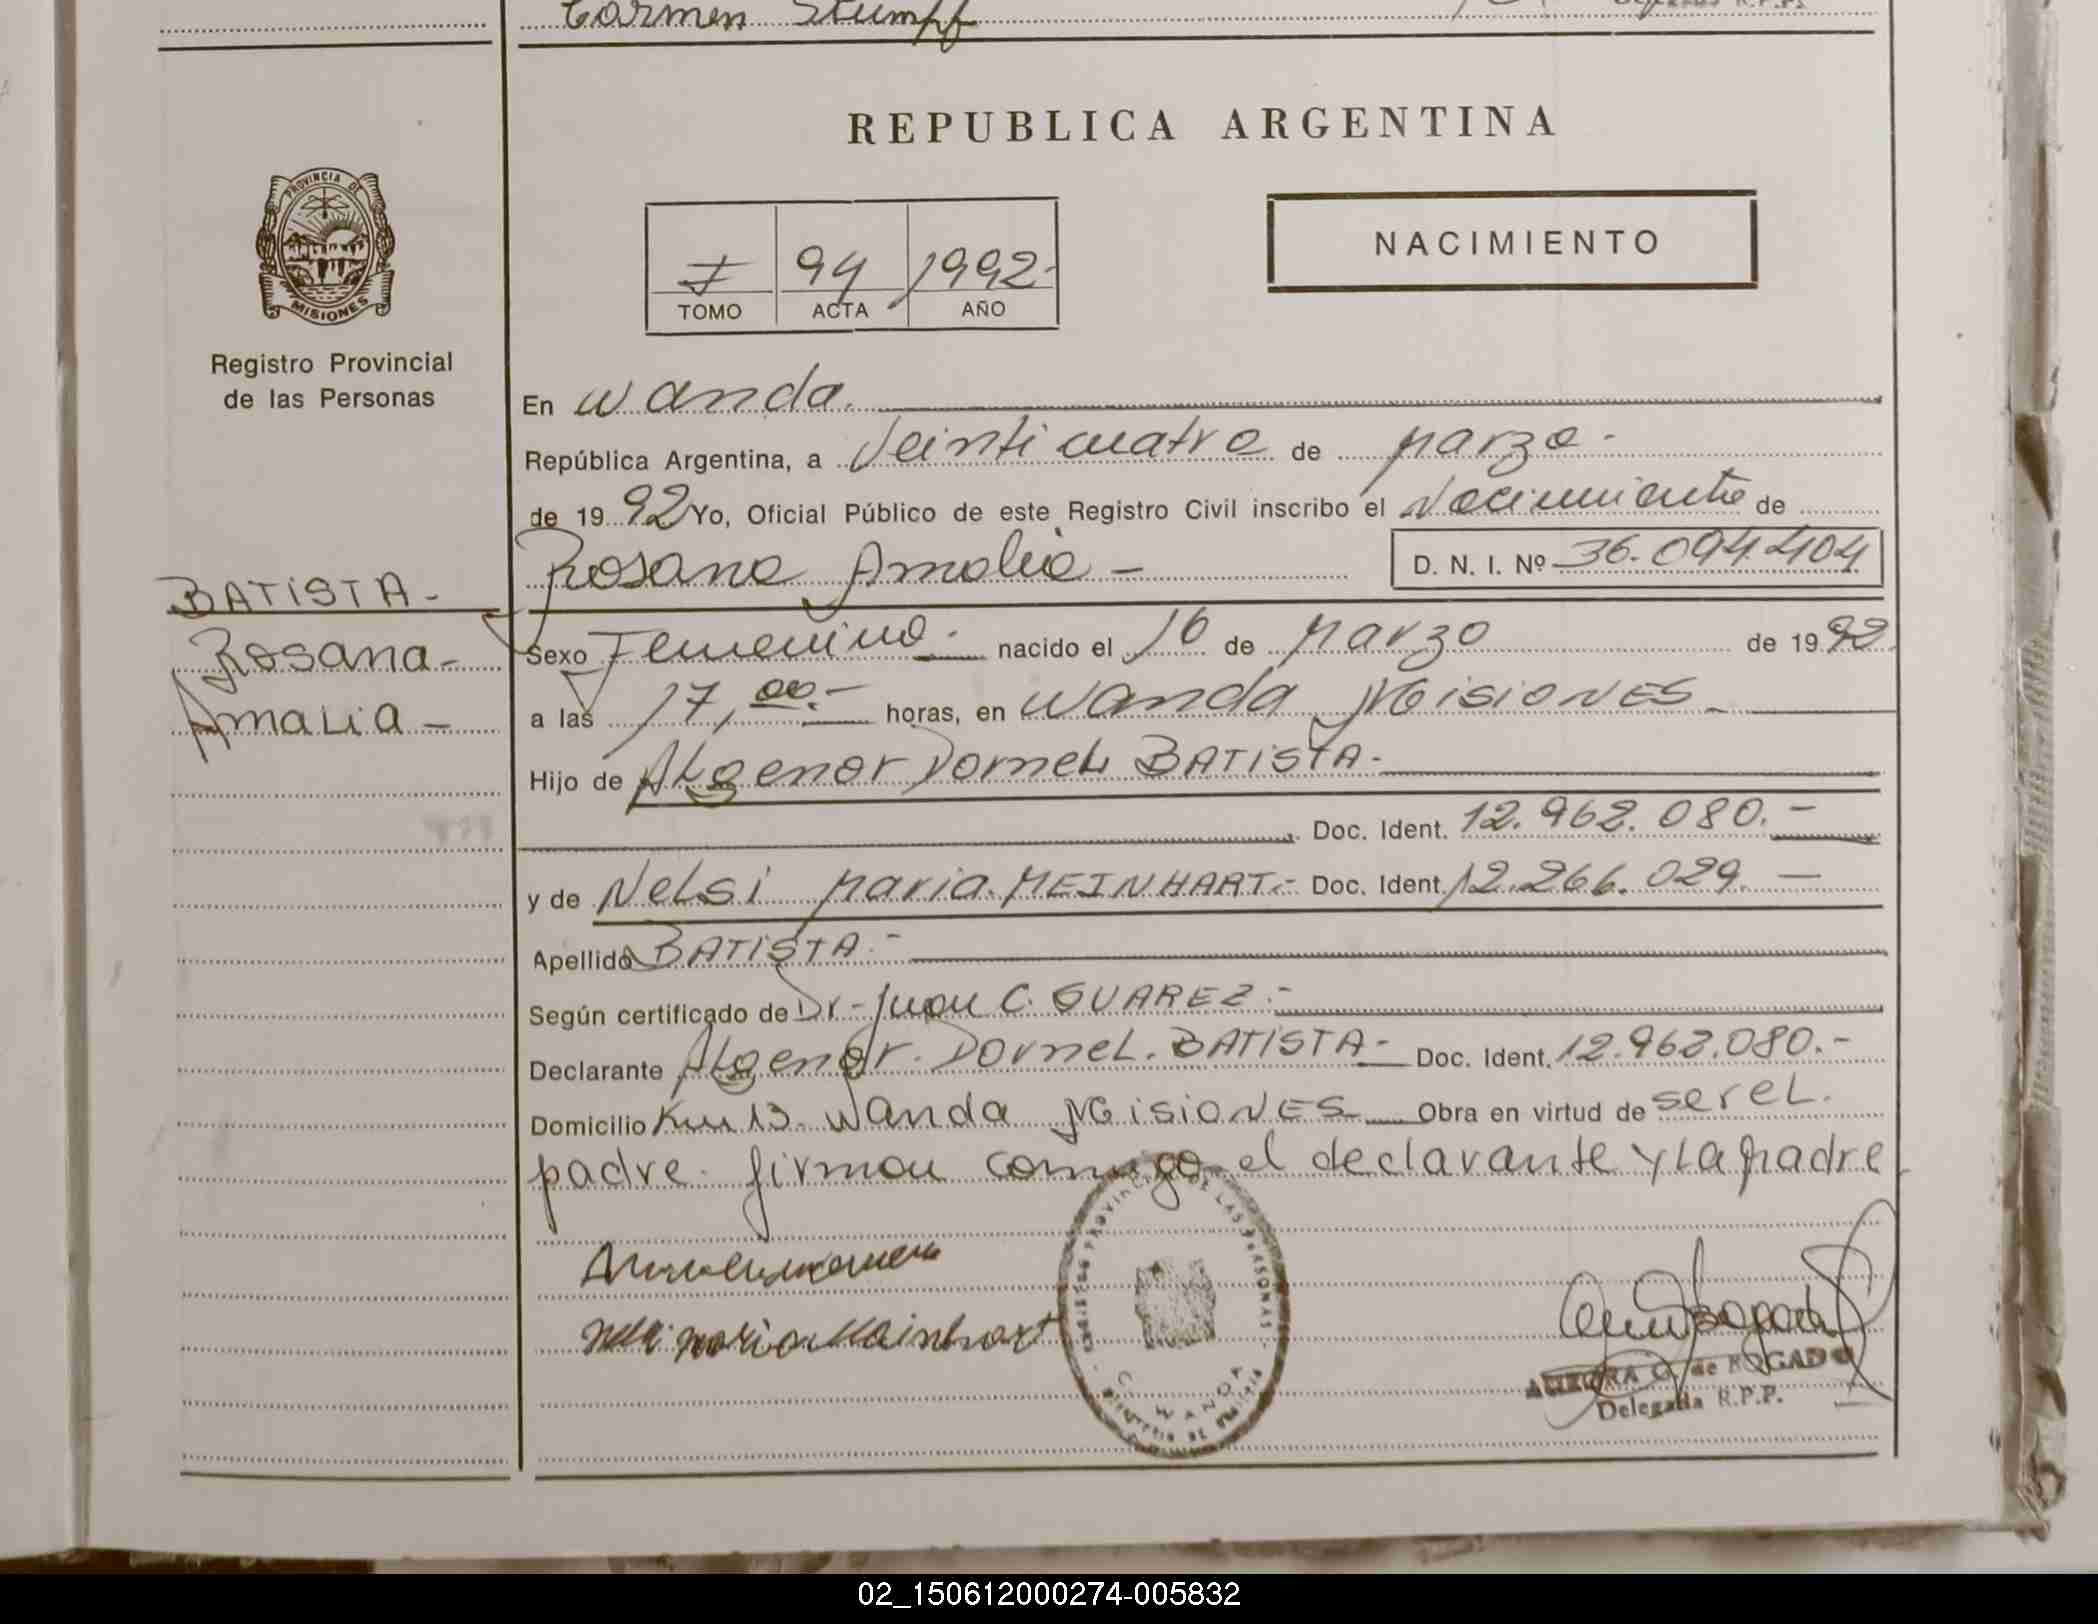 Carmen Stumpf
REPUBLICA ARGENTINA
PROVINCIA DE
MISIONES
NACIMIENTO
I 94 1992-
TOMO ACTA AÑO
Registro Provincial
de las Personas
En Wanda.
República Argentina, a Veinticuatro de Marzo-
de 1992 Yo, Oficial Público de este Registro Civil inscribo el Nacimiento de
Rosana Amalia - D. N. I. Nº 36.094.404
BATISTA-
Rosana-
Amalia-
Sexo Femenino.- nacido el 16 de Marzo de 1992
a las 17,00.- horas, en Wanda Misiones-
Hijo de Algenor Dornel BATISTA.-
Doc. Ident. 12.962.080.-
y de Nelsi Maria MEINHART.- Doc. Ident. 12.266.029.-
Apellido BATISTA.-
Según certificado de Dr- Juan C. SUAREZ.-
Declarante Algenor Dornel BATISTA- Doc. Ident. 12.962.080.-
Domicilio Km 13. Wanda Misiones Obra en virtud de ser el.
padre. firman conmigo el declarante y la madre
Maria Meinhart
WANDA
AURORA G. de BOGADO
Delegada R.P.P.
02_150612000274-005832